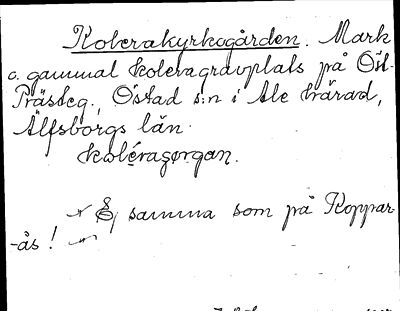 Kolerakyrkogården. Mark
o. gammal kolera gravplats på Öst-
Prästeg., Östad s:n i Ale härad,
Älfsborgs län.
koléragørgan.
Ej samma som på Koppar-
-ås!